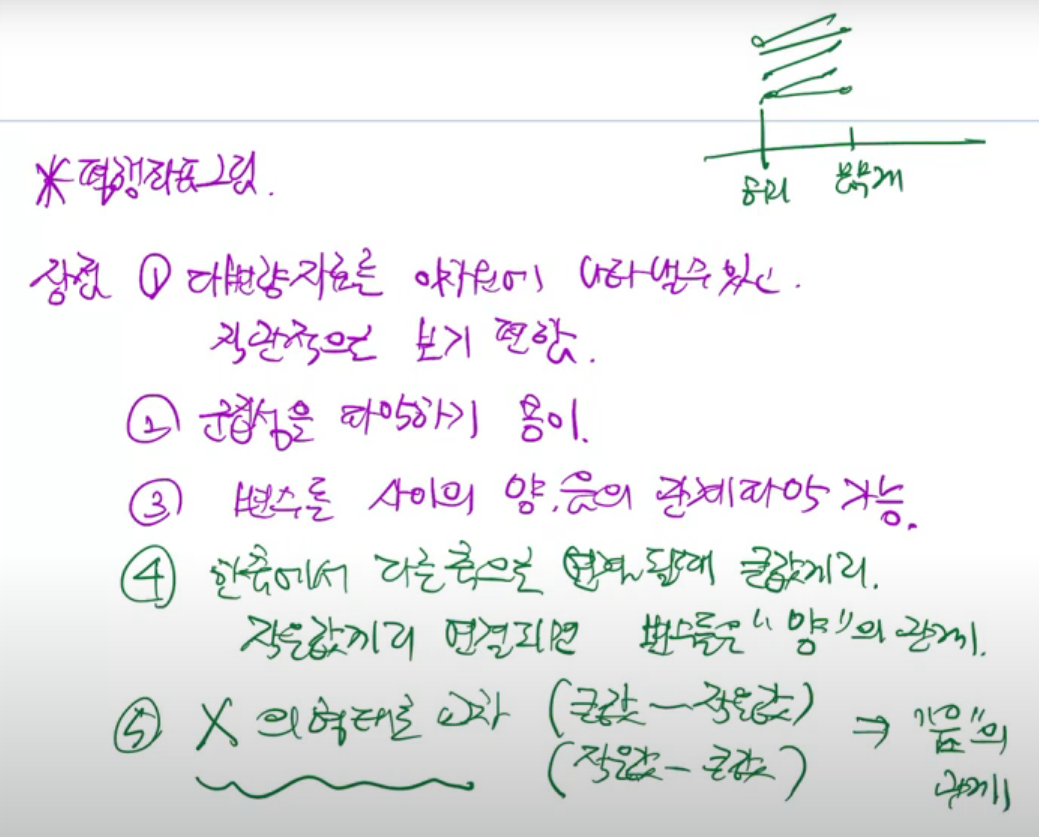 키 몸무게
*평행좌표그림.
장점 ① 다변량자료를 이차원에 나타낼수있는.
직관적으로 보기 편함.
② 군집성을 파악하기 용이.
③ 변수들 사이의 양,음의 관계파악 가능.
④ 한축에서 다른축으로 연결될때 큰값끼리.
작은값끼리 연결되면 변수들은 "양"의 관계.
⑤ X의형태로 교차 (큰값-작은값) ⇒ "음"의
(작은값-큰값) 관계